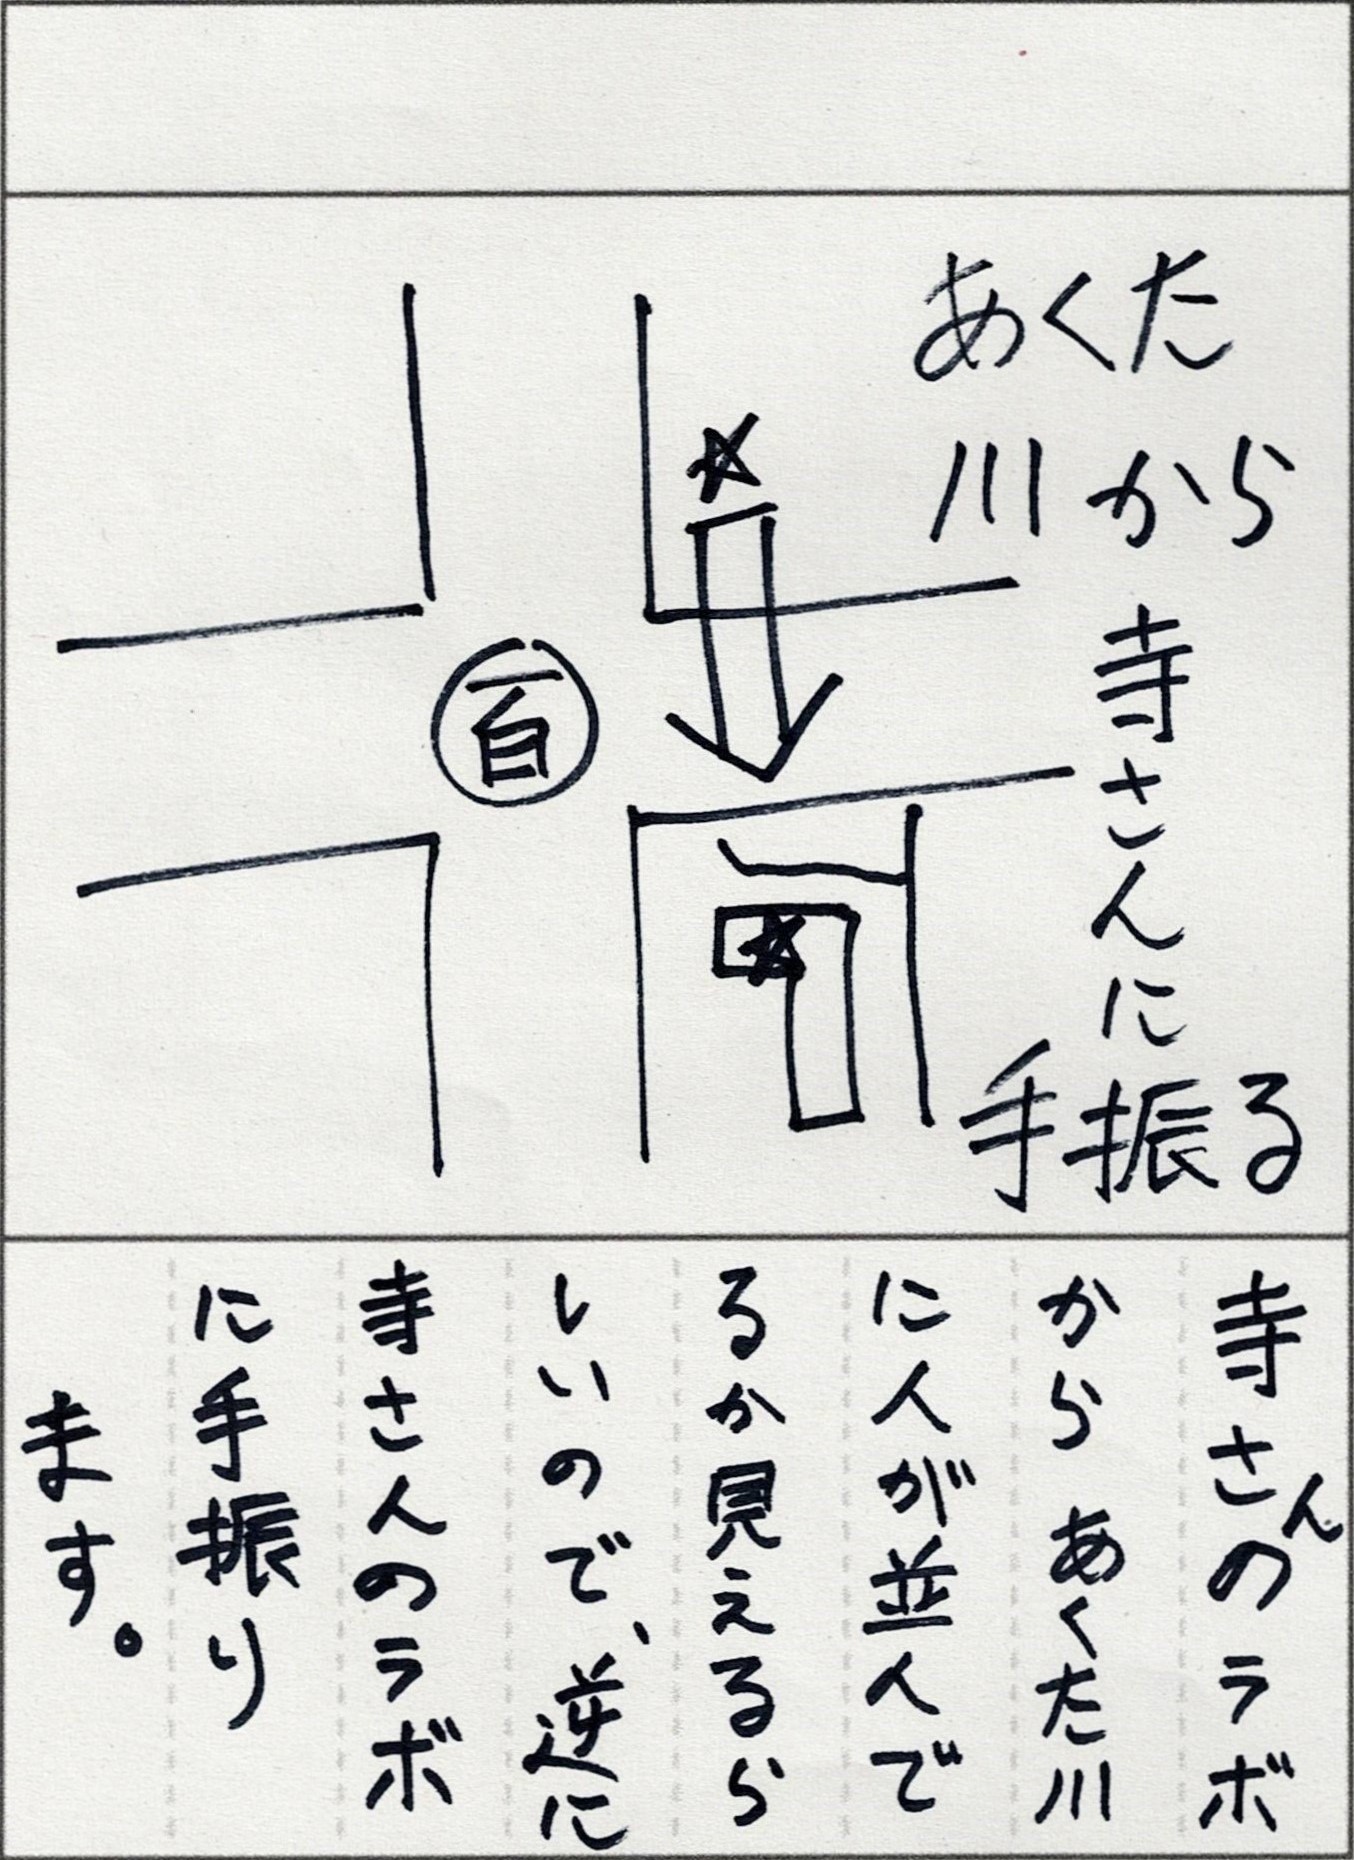 あくた
川から
寺さんに
手振る
百
寺さんのラボ
からあくた川
に人が並んで
るか見えるら
しいので、逆に
寺さんのラボ
に手振り
ます。